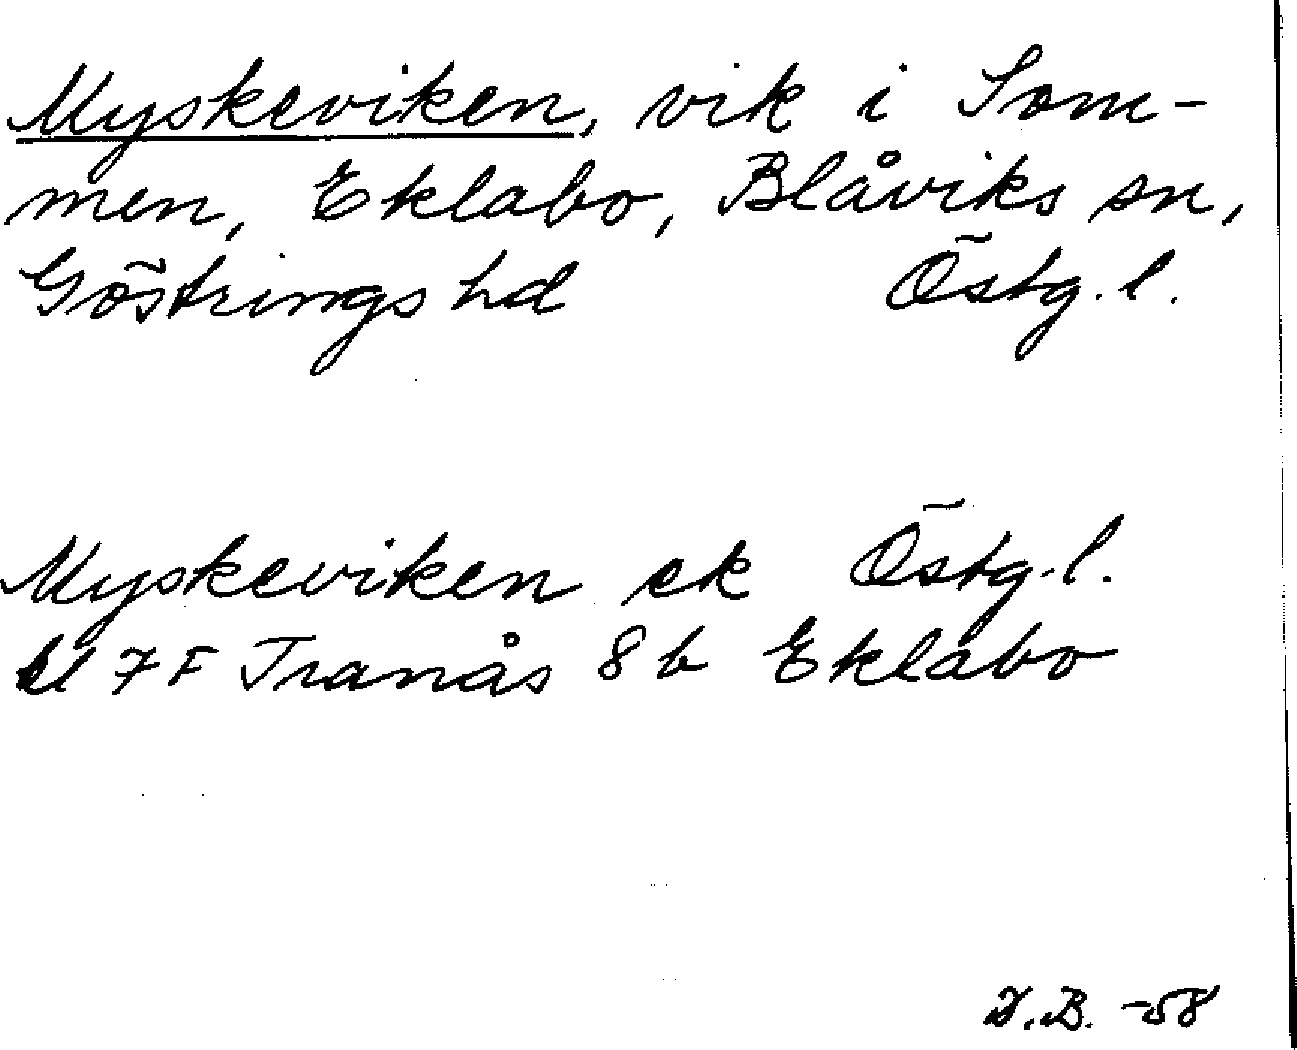 Myskeviken, vik i Som-
men, Eklabo, Blåviks sn,
Göstrings hd Östg.l.
Myskeviken ek Östg.l.
bl 7F Tranås 8b Eklabo
I.B. -58